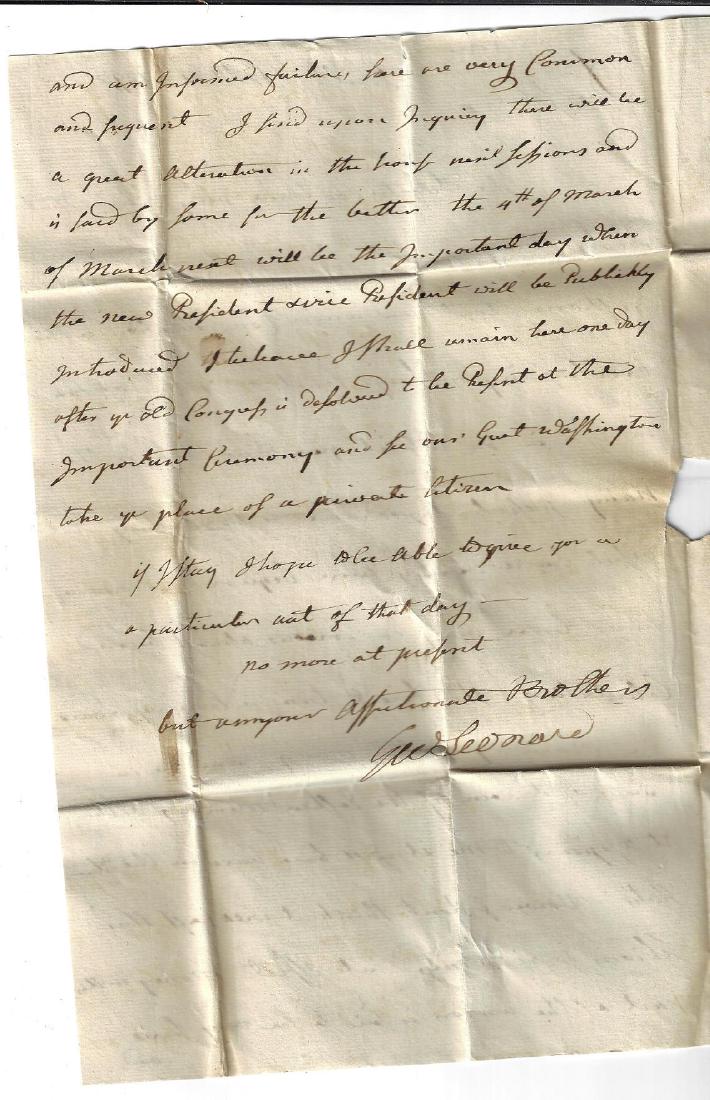 and am Informed failures here are very Common
and frequent I find upon Inquiry there will be
a great Alteration in the hous next sessions and
is said by some for the better the 4th of March
of March next will be the Important day when
the new President & vice President will be Publickly
Introduced I beleave I shall remain here one day
after ye old Congress is desolved to be Present at the
Important Ceremony and se our Great Washington
take ye place of a private Citizen
if I stay I hope to be Able to give you a
a particular act of that day —
no more at present
but am your Affectionate Brother
Geo Leonard